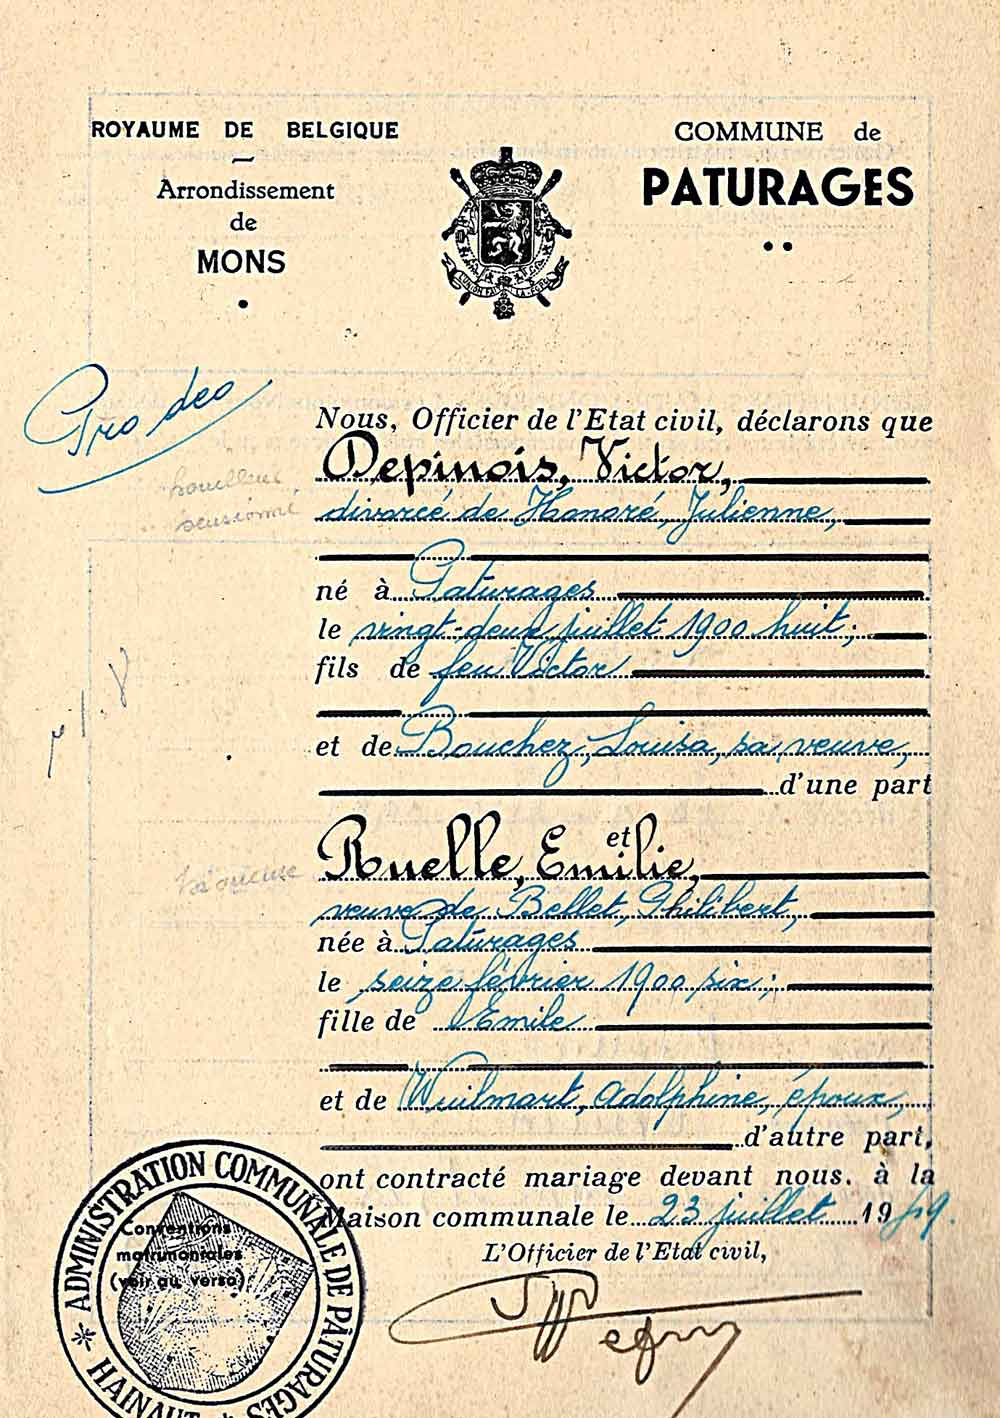 ROYAUME DE BELGIQUE
Arrondissement
de
MONS
COMMUNE de
PATURAGES
Pro deo
Nous, Officier de l'Etat civil, déclarons que
Depinois, Victor,
houilleur
pensionné
divorcé de Honoré, Julienne,
né à Paturages
le vingt-deux juillet 1900 huit;
fils de feu Victor
et de Bouchez, Louisa, sa veuve,
d'une part
et
Ruelle, Emilie,
veuve de Bellet, Philibert,
née à Paturages
le seize février 1900 six;
fille de Emile
et de Wuilmart, Adolphine, époux,
d'autre part,
ont contracté mariage devant nous. à la
Maison communale le 23 juillet 1949.
L'Officier de l'Etat civil,
ADMINISTRATION COMMUNALE DE PÂTURAGES
HAINAUT
Conventions
matrimoniales
(voir au verso)